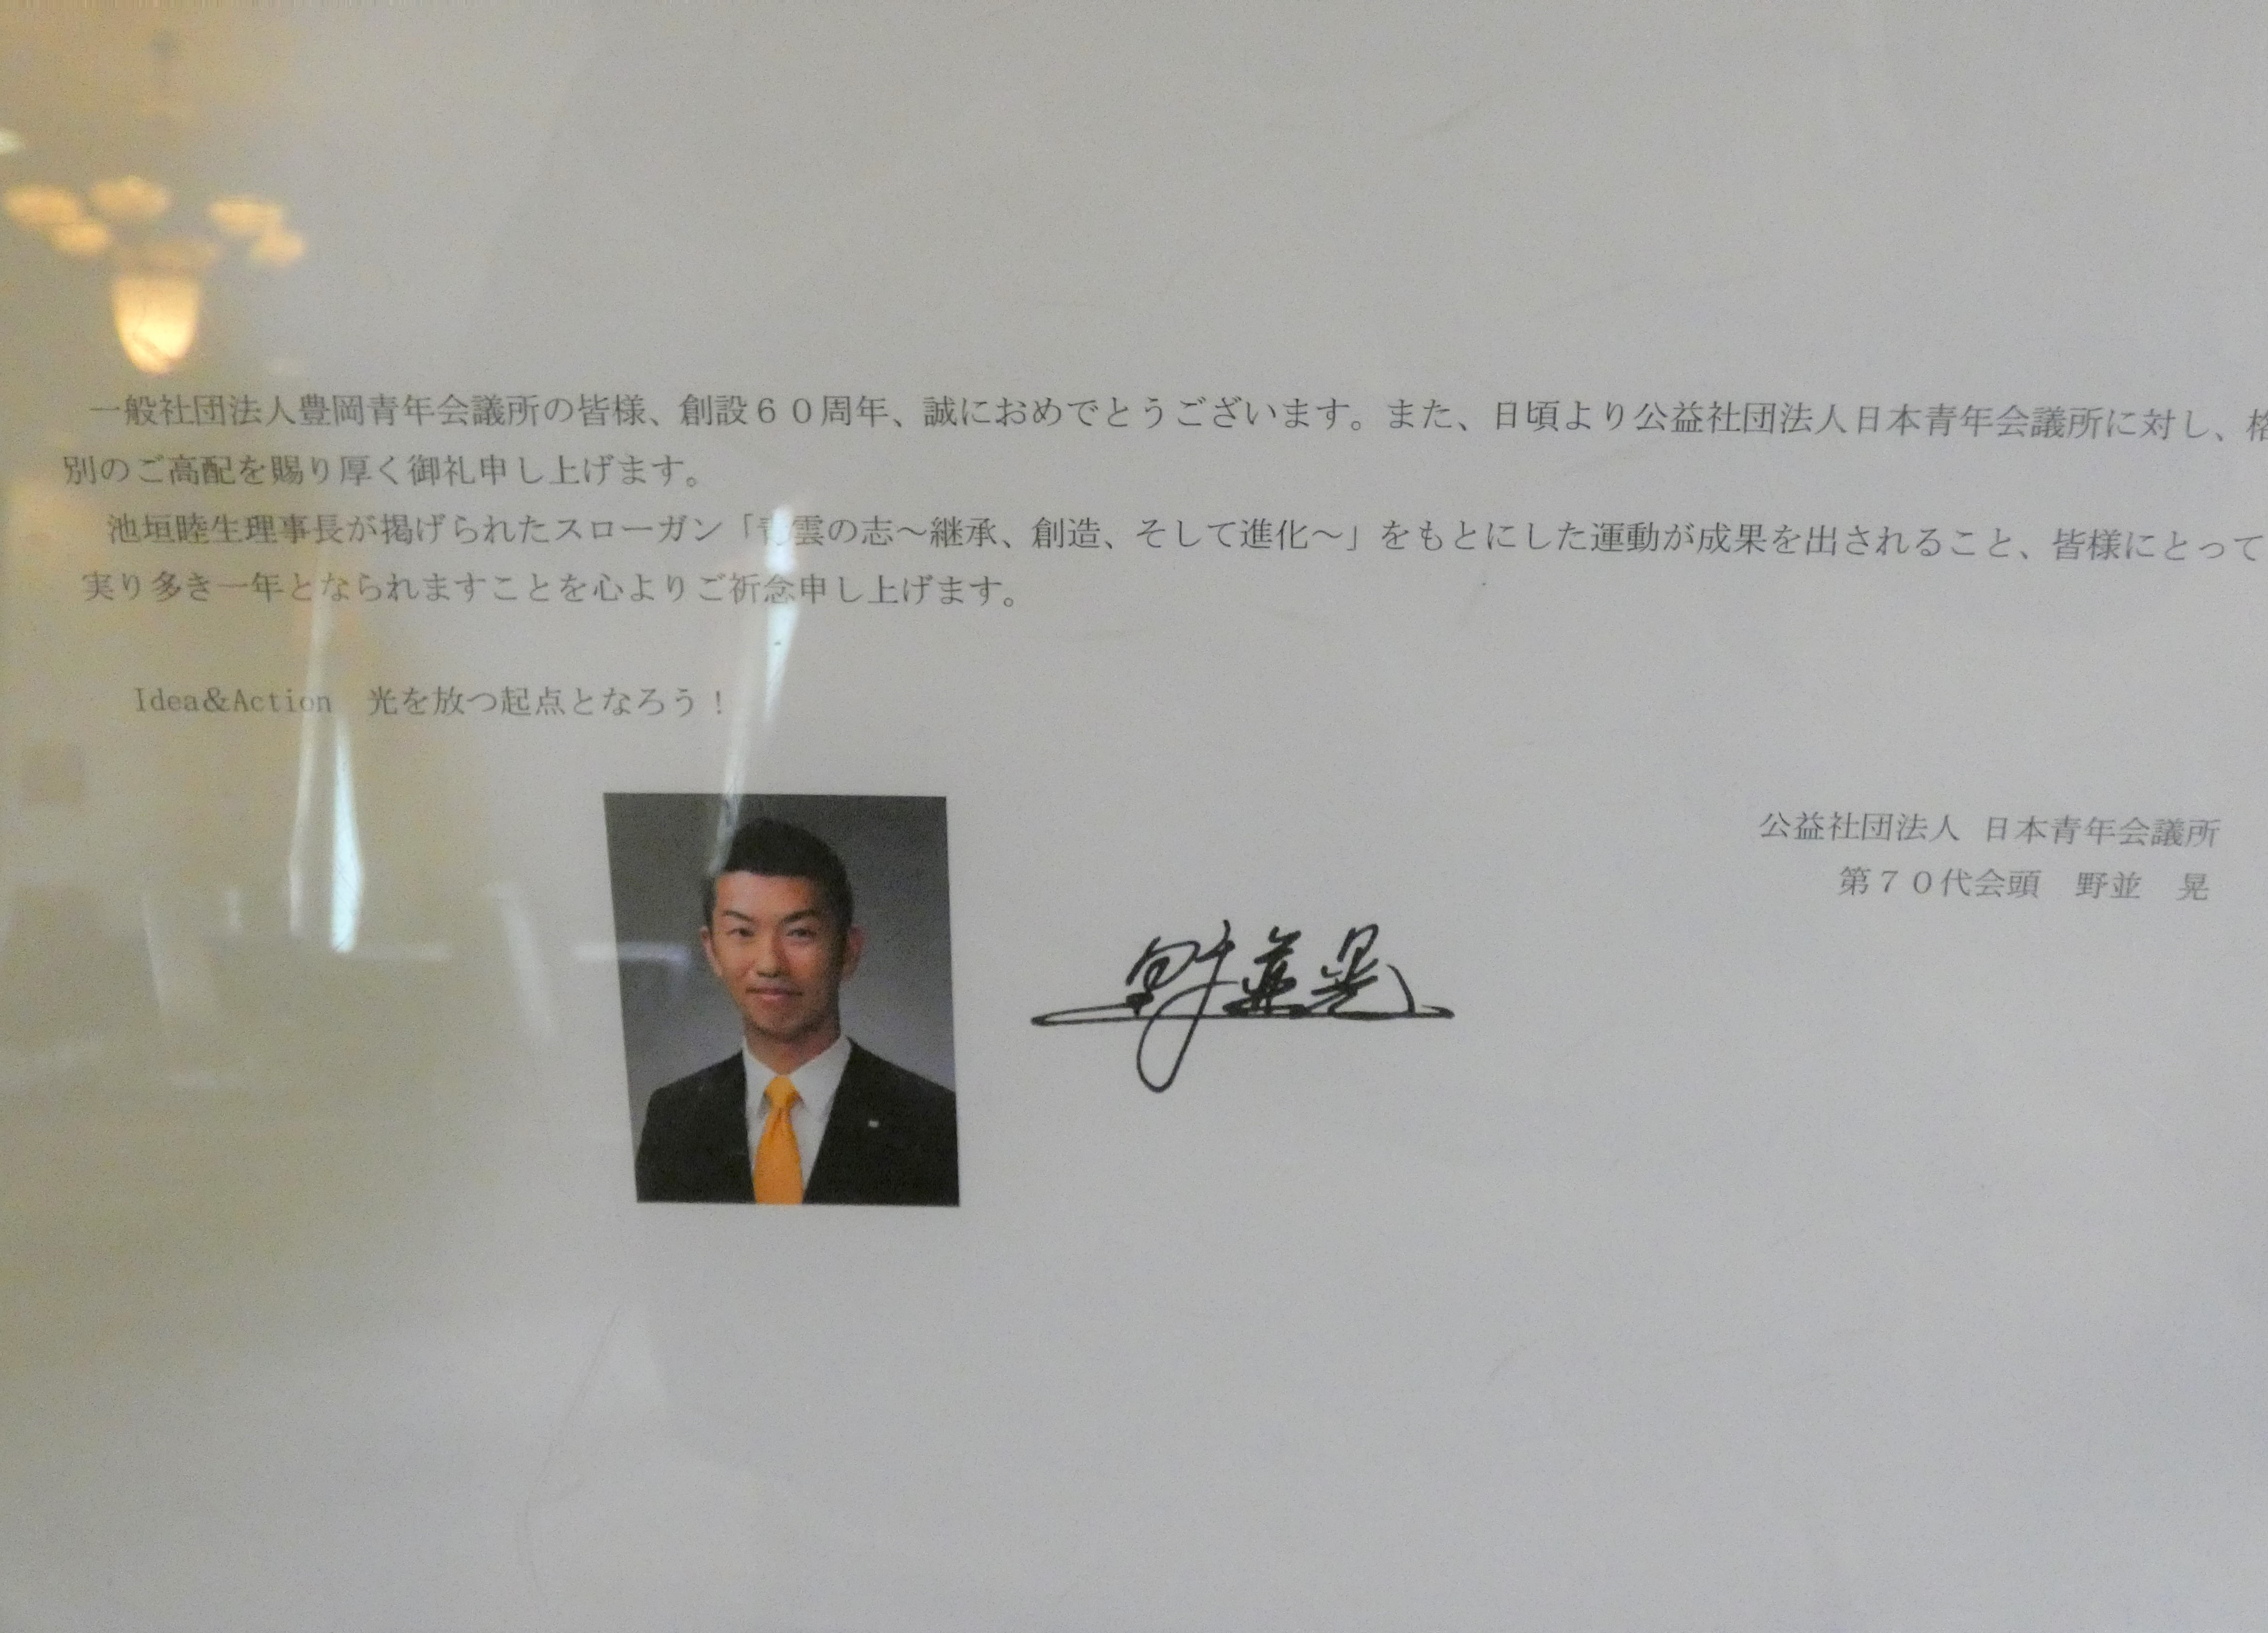 一般社団法人豊岡青年会議所の皆様、創設６０周年、誠におめでとうございます。また、日頃より公益社団法人日本青年会議所に対し、格
別のご高配を賜り厚く御礼申し上げます。
池垣睦生理事長が掲げられたスローガン「青雲の志～継承、創造、そして進化～」をもとにした運動が成果を出されること、皆様にとって
実り多き一年となられますことを心よりご祈念申し上げます。
Idea&Action　光を放つ起点となろう！
公益社団法人 日本青年会議所
第７０代会頭　野並　晃
野並晃